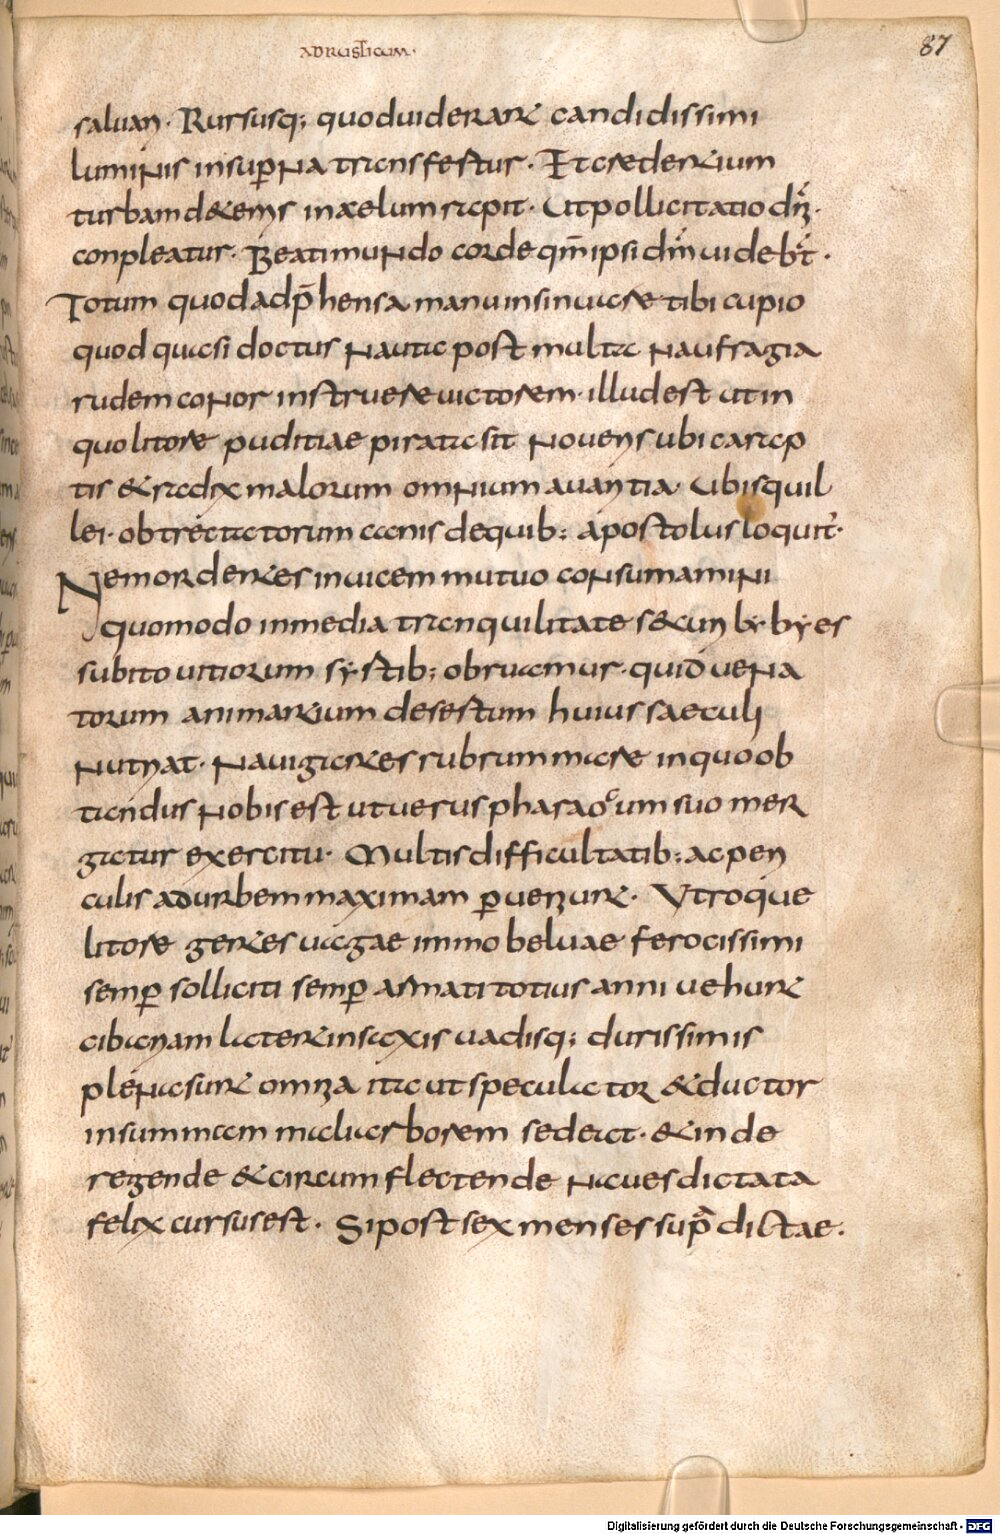 AD RUSTICUM·
87
saluari· Rursusq; quoduiderant candidissimi
luminis insuperna transfertur· Et caedentium
turbam daemonis in caelum rapit· Ut pollicitatio dni·
conpleatur· Beati mundo corde qm̄ ipsi dm̄ uidebt·
Totum quod adp̄hensa manu insinuare tibi cupio
quod quasi doctus nauta post multa naufragia
rudem conor instruere uictorem· illud est ut in
quo litore puditiae pirata sit noueris ubi carap
tis & radix malorum omnium auaritia· Ubi squil
lei· obtrectatorum canis de quib; apostolus loquit·
Nemordentes inuicem mutuo consumamini
quomodo in media tranquilitate securi lybyes
subito uitiorum systib; obruamur· quid uena
torum animarum desertum huius saeculi
nutriat· Nauigantes rubrum mare in quo ob
tandus nobis est ut uerus pharao cum suo mer
gatur exercitu· Multis difficultatib; ac peri
culis ad urbem maximam perueniunt· Utroque
litore gentes uagae immo beluae ferocissimi
semper solliciti semper armati totius anni uehunt
cibariam latent in saxis uadisq; durissimis
plena sunt omnia ita ut speculator & ductor
in summam mali arborem sedeat· & inde
regende & circumflectende naues dictata
felix cursus est· Si post sex menses supradictae·
Digitalisierung gefördert durch die Deutsche Forschungsgemeinschaft - DFG